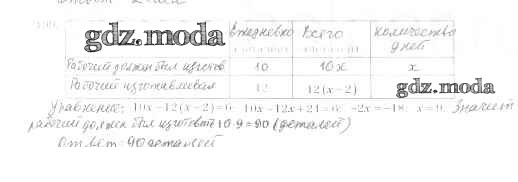 gdz.moda
Ежедневно Всего количество дней
Рабочий должен был изготов 10 10x x
Рабочий изготавливал 12 12(x−2)
gdz.moda
Уравнение: 10x−12(x−2)=6 10x−12x+24=6 −2x=−18 x=9. Значит
рабочий должен был изготовить 10·9=90 (деталей)
Ответ: 90 деталей